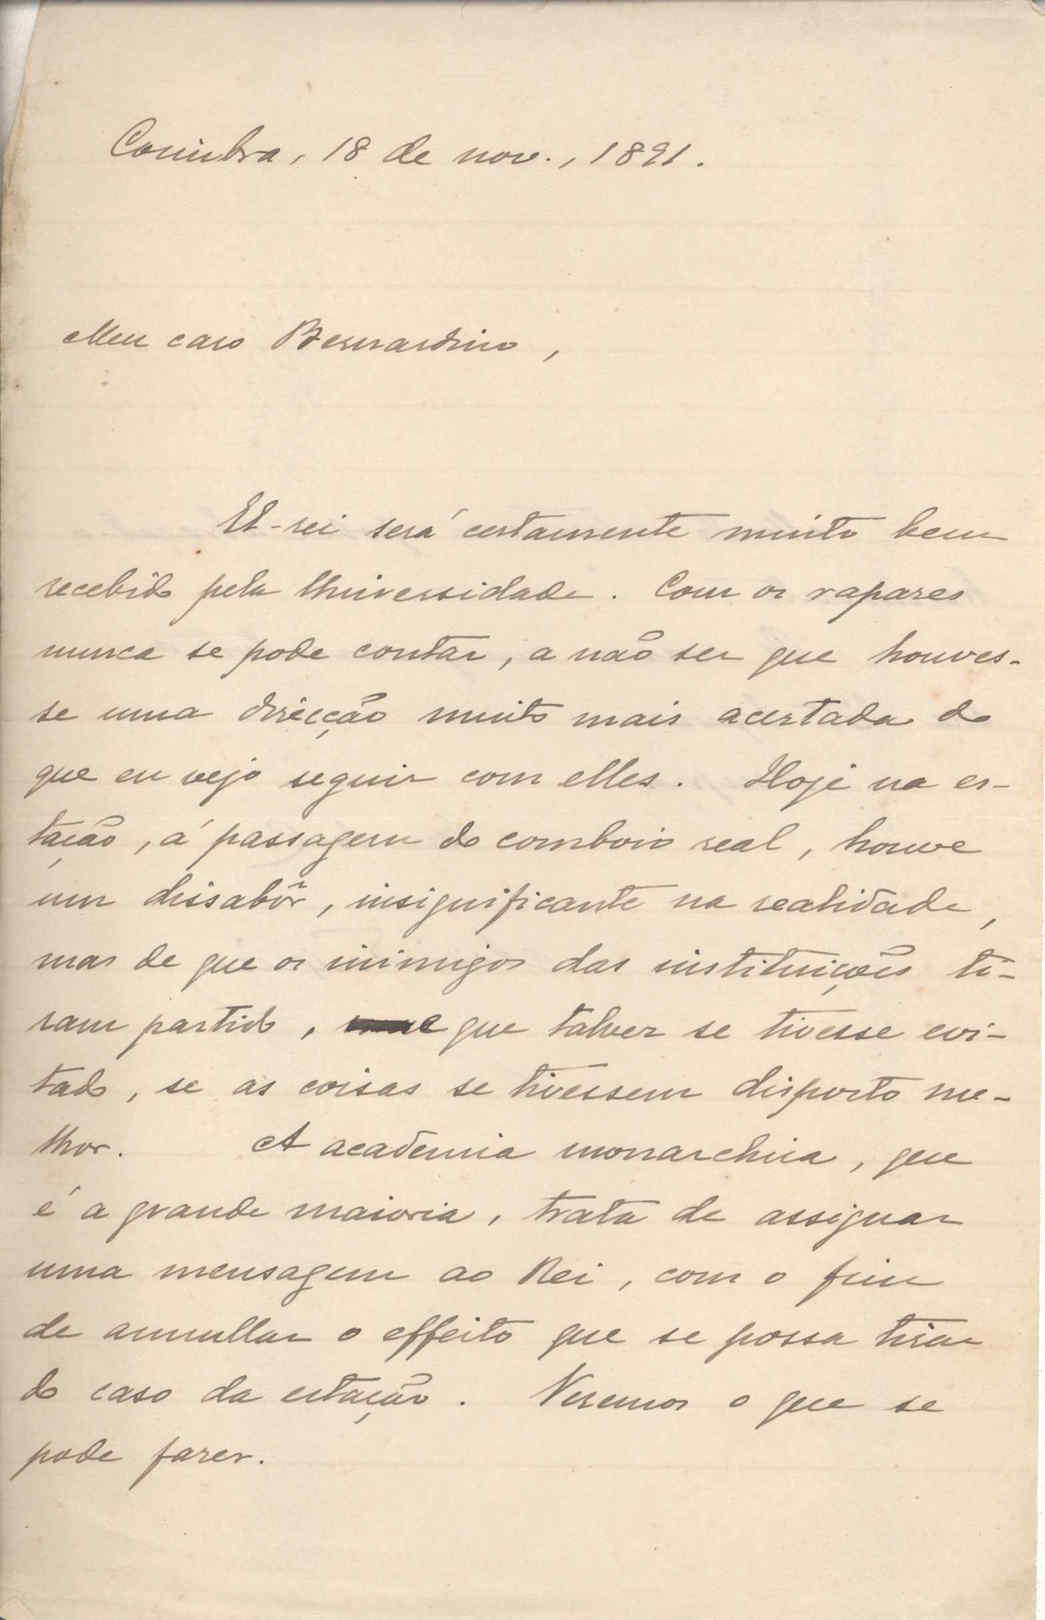 Coimbra, 18 de nov., 1891.
Meu caro Bernardino,
El-rei será certamente muito bem
recebido pela Universidade. Com os rapazes
nunca se pode contar, a não ser que houves-
se uma direcção muito mais acertada do
que eu vejo seguir com elles. Hoje na es-
tação, á passagem do comboio real, houve
um dissabôr, insignificante na realidade,
mas de que os inimigos das instituições ti-
ram partido, e que talvez se tivesse evi-
tado, se as coisas se tivessem disposto me-
lhor. A academia monarchica, que
é a grande maioria, trata de assignar
uma mensagem ao Rei, com o fim
de annullar o effeito que se possa tirar
do caso da estação. Veremos o que se
pode fazer.